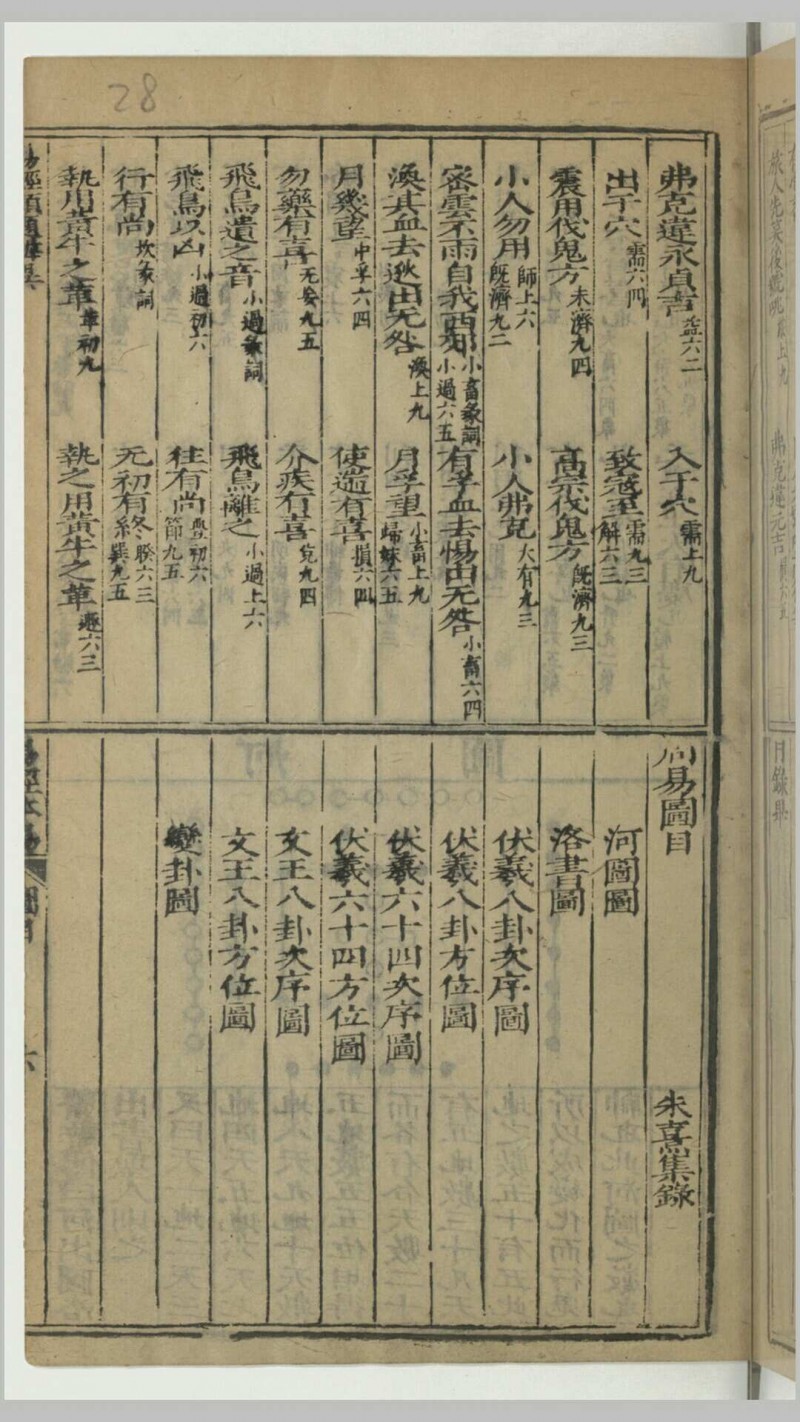 28
弗克違永貞吉 益六二
入于穴 需上九
出于穴 需六四
致寇至 需九三 解六三
震用伐鬼方 未濟九四
高宗伐鬼方 旣濟九三
小人勿用 師上六 旣濟九二
小人弗克 大有九三
密雲不雨自我西郊 小畜彖詞 小過六五
有孚血去惕出无咎 小畜六四
渙其血去逖出无咎 渙上九
月幾望 小畜上九 歸妹六五
月幾望 中孚六四
使遄有喜 損六四
勿藥有喜 无妄九五
介疾有喜 兌九四
飛鳥遺之音 小過彖詞
飛鳥離之 小過上六
飛鳥以凶 小過初六
往有尚 豐初六 節九五
行有尚 坎彖詞
无初有終 睽六三 巽九五
執用黃牛之革 革初九
執之用黃牛之革 遯六二
周易圖目
朱熹集錄
河圖圖
洛書圖
伏羲八卦次序圖
伏羲八卦方位圖
伏羲六十四次序圖
伏羲六十四方位圖
文王八卦次序圖
文王八卦方位圖
變卦圖
六